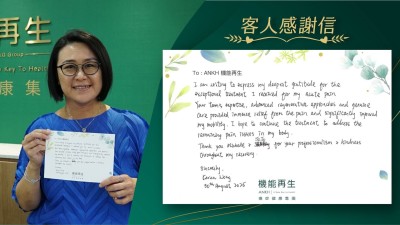 再生
Key To Health
康集
客人感謝信
To : ANKH 機能再生
I am writing to express my deepest gratitude for the
exceptional treatment I received for my acute pain.
Your team's expertise, advanced regenerative approaches and genuine
care provided immense relief from the pain and significantly improved
my mobility. I hope to continue the treatment to address the
remaining pain issues in my body.
Thank you &
for your professionalism & kindness
throughout my recovery.
Sincerely,
2025
機能再生
ANKH